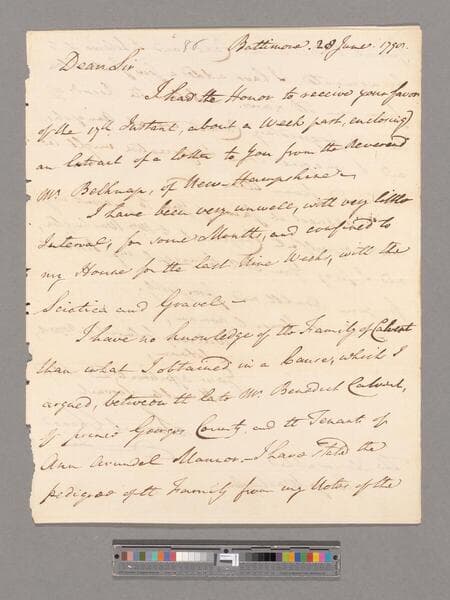 Baltimore. 28 June. 1790.
Dear Sir
I had the Honor to receive your favor
of the 17th Instant, about a Week past, enclosing
an Extract of a letter to You from the Reverend
Mr. Belknap, of New-Hampshire –
I have been very unwell, with very little
Interval, for some Months, and confined to
my House for the last Nine Weeks, with the
Sciatica and Gravel. –
I have no knowledge of the Family of Calvert
than what I obtained in a Cause, which I
argued, between the late Mr. Benedict Calvert,
of prince Georges County and the Tenants of
Ann Arundel Manor. – I have stated the
pedigree of the Family from my Notes of the